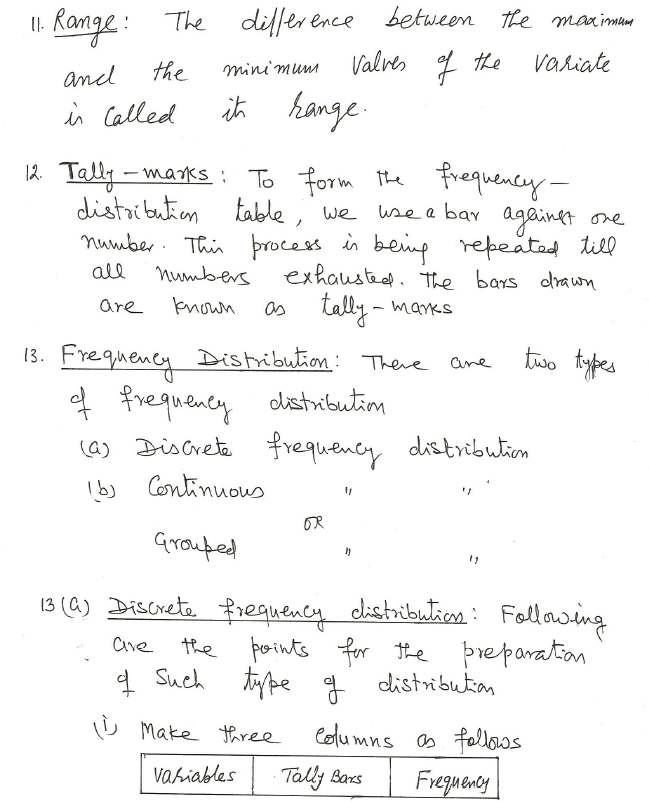 11. Range: The difference between the maximum
and the minimum Values of the variate
is Called its range.
12. Tally-marks: To form the frequency-
distribution table, we use a bar against one
number. This process is being repeated till
all numbers exhausted. The bars drawn
are known as tally-marks
13. Frequency Distribution: There are two types
of frequency distribution
(a) Discrete frequency distribution
(b) Continuous " "
OR
Grouped " "
13 (a) Discrete frequency distribution: Following
are the points for the preparation
of Such type of distribution
(i) Make three Columns as follows
Variables Tally Bars Frequency